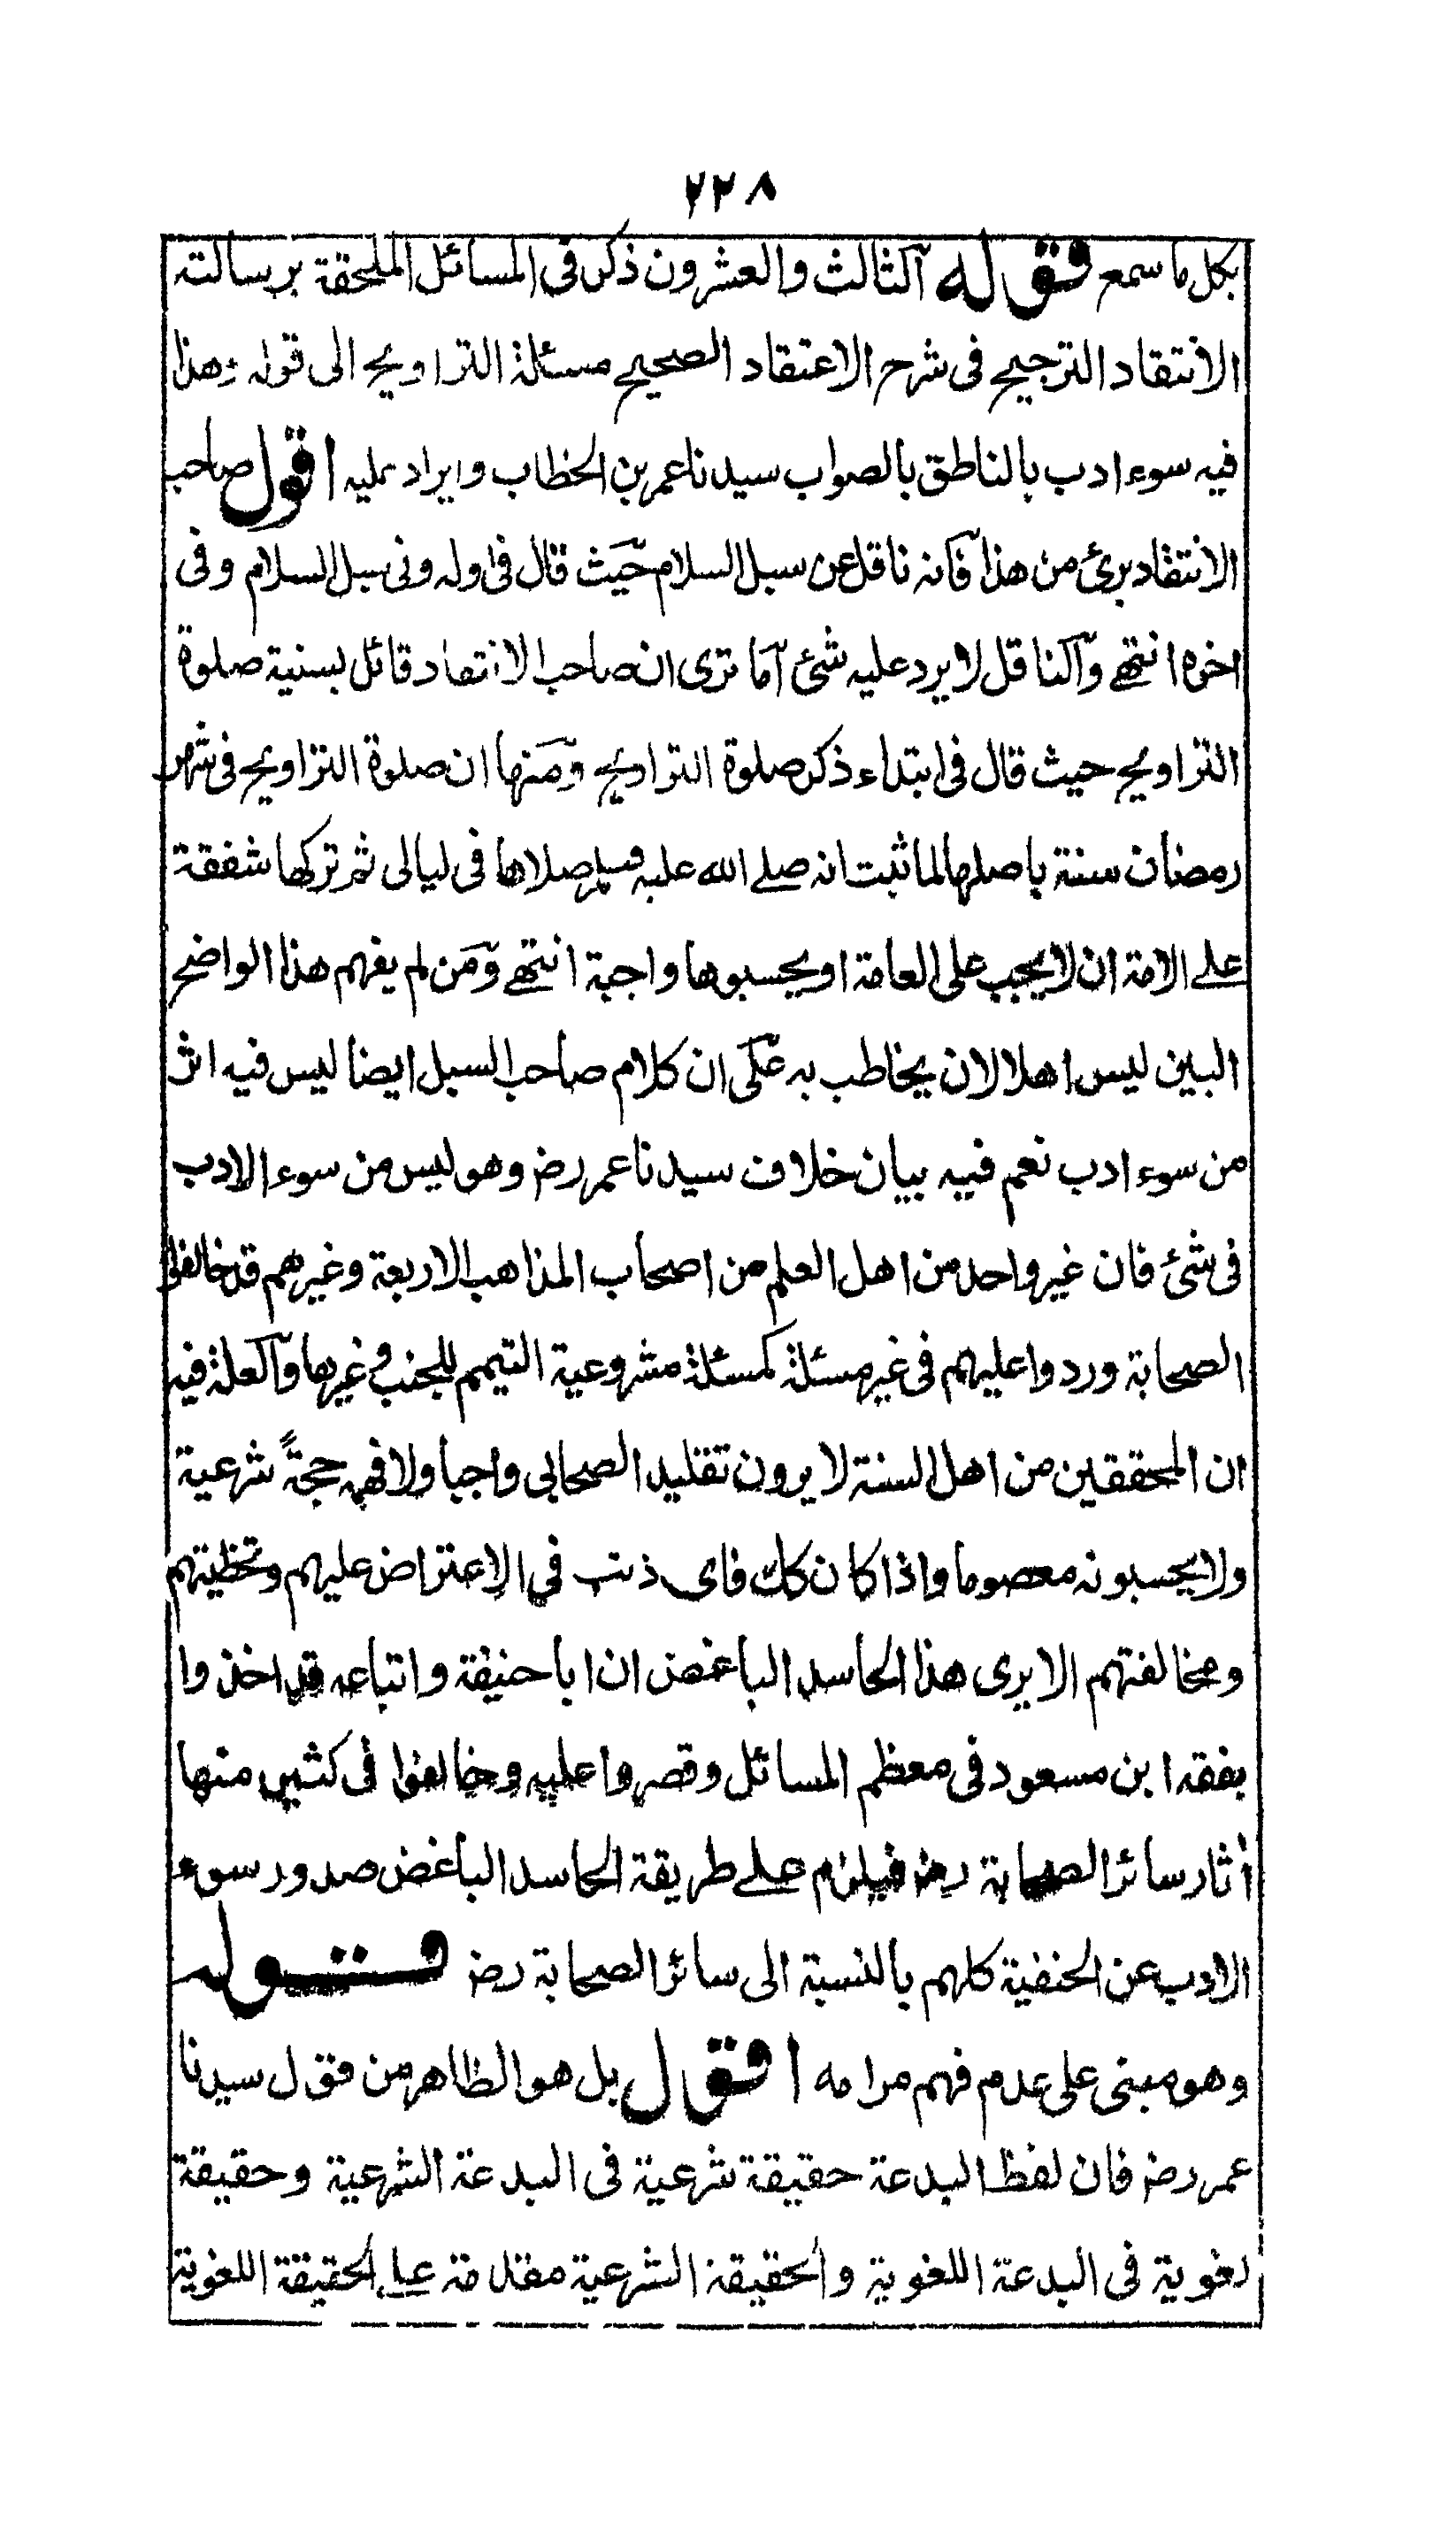 ٢٢٨
بكل ما سمع قوله الثالث والعشرون ذكر فى المسائل الملحقة برسالته
الانتقاد الترجيح فى شرح الاعتقاد الصحيح مسئلة التراويح الى قوله وهذا
فيه سوء ادب بالناطق بالصواب سيدنا عمر بن الخطاب وايراد عليه اقول صاحب
الانتقاد برئ من هذا فانه ناقل عن سبل السلام حيث قال فى اوله وفى سبل السلام وفى
اخره انتهے والناقل لا يرد عليه شئ اما ترى ان صاحب الانتقاد قائل بسنية صلوة
التراويح حيث قال فى ابتداء ذكر صلوة التراويح ومنها ان صلوة التراويح فى شهر
رمضان سنة باصلها لما ثبت انه صلے الله عليه وسلم صلاها فى ليالى ثم تركها شفقة
علے الامة ان لا يجب على العامة او يحسبوها واجبة انتهے ومن لم يفهم هذا الواضح
البين ليس اهلا لان يخاطب به على ان كلام صاحب السبل ايضا ليس فيه اثر
من سوء ادب نعم فيه بيان خلاف سيدنا عمر رض وهو ليس من سوء الادب
فى شئ فان غير واحد من اهل العلم من اصحاب المذاهب الاربعة وغيرهم قد خالفوا
الصحابة وردوا عليهم فى غير مسئلة كمسئلة مشروعية التيمم للجنب وغيرها والعلة فيه
ان المحققين من اهل السنة لا يرون تقليد الصحابى واجبا ولا فهمه حجةً شرعية
ولا يحسبونه معصوما واذا كان كك فاى ذنب في الاعتراض عليهم وتخطيتهم
ومخالفتهم الا يرى هذا الحاسد الباغض ان ابا حنيفة واتباعه قد اخذوا
بفقه ابن مسعود فى معظم المسائل وقصروا عليه وخالفوا فى كثير منها
أثار سائر الصحابة رض فيلزم علے طريقة الحاسد الباغض صدور سوء
الادب عن الحنفية كلهم بالنسبة الى سائر الصحابة رض قوله
وهو مبنى على عدم فهم مرامه اقول بل هو الظاهر من قول سيدنا
عمر رض فان لفظ البدعة حقيقة شرعية فى البدعة الشرعية وحقيقة
لغوية فى البدعة اللغوية والحقيقة الشرعية مقدمة علے الحقيقة اللغوية